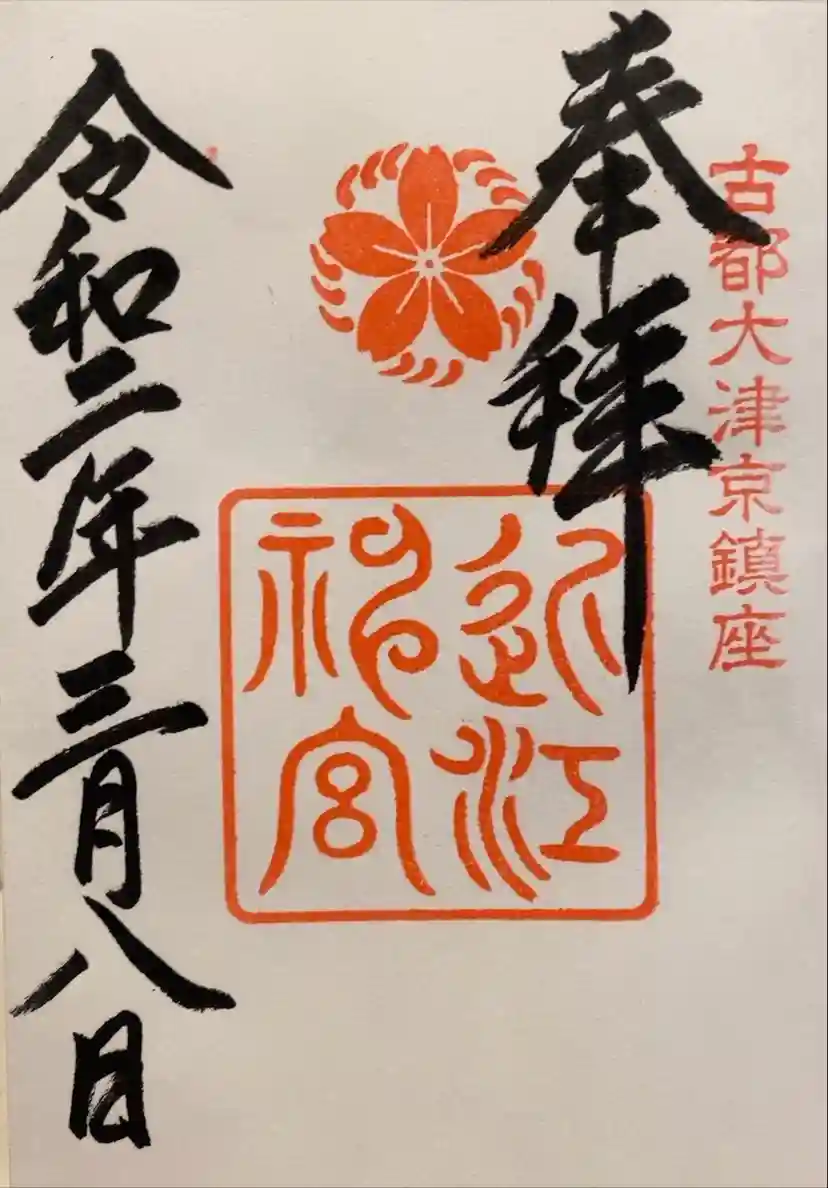 古都大津京鎮座
奉拝
近江
神宮
令和二年三月八日